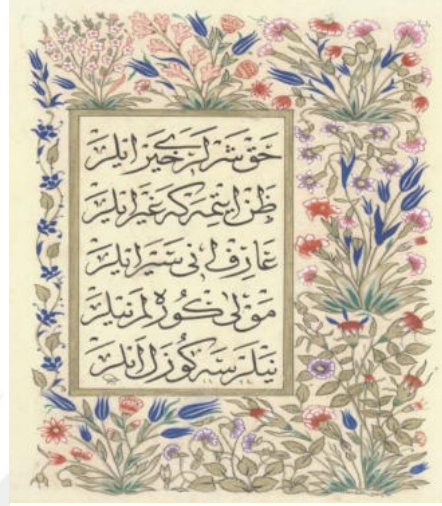 حق شرلری خیر ایلر
ظن ایتمه که غیر ایلر
عارف انی سیر ایلر
مولی کوره لم نیلر
نیلرسه کوزل ایلر